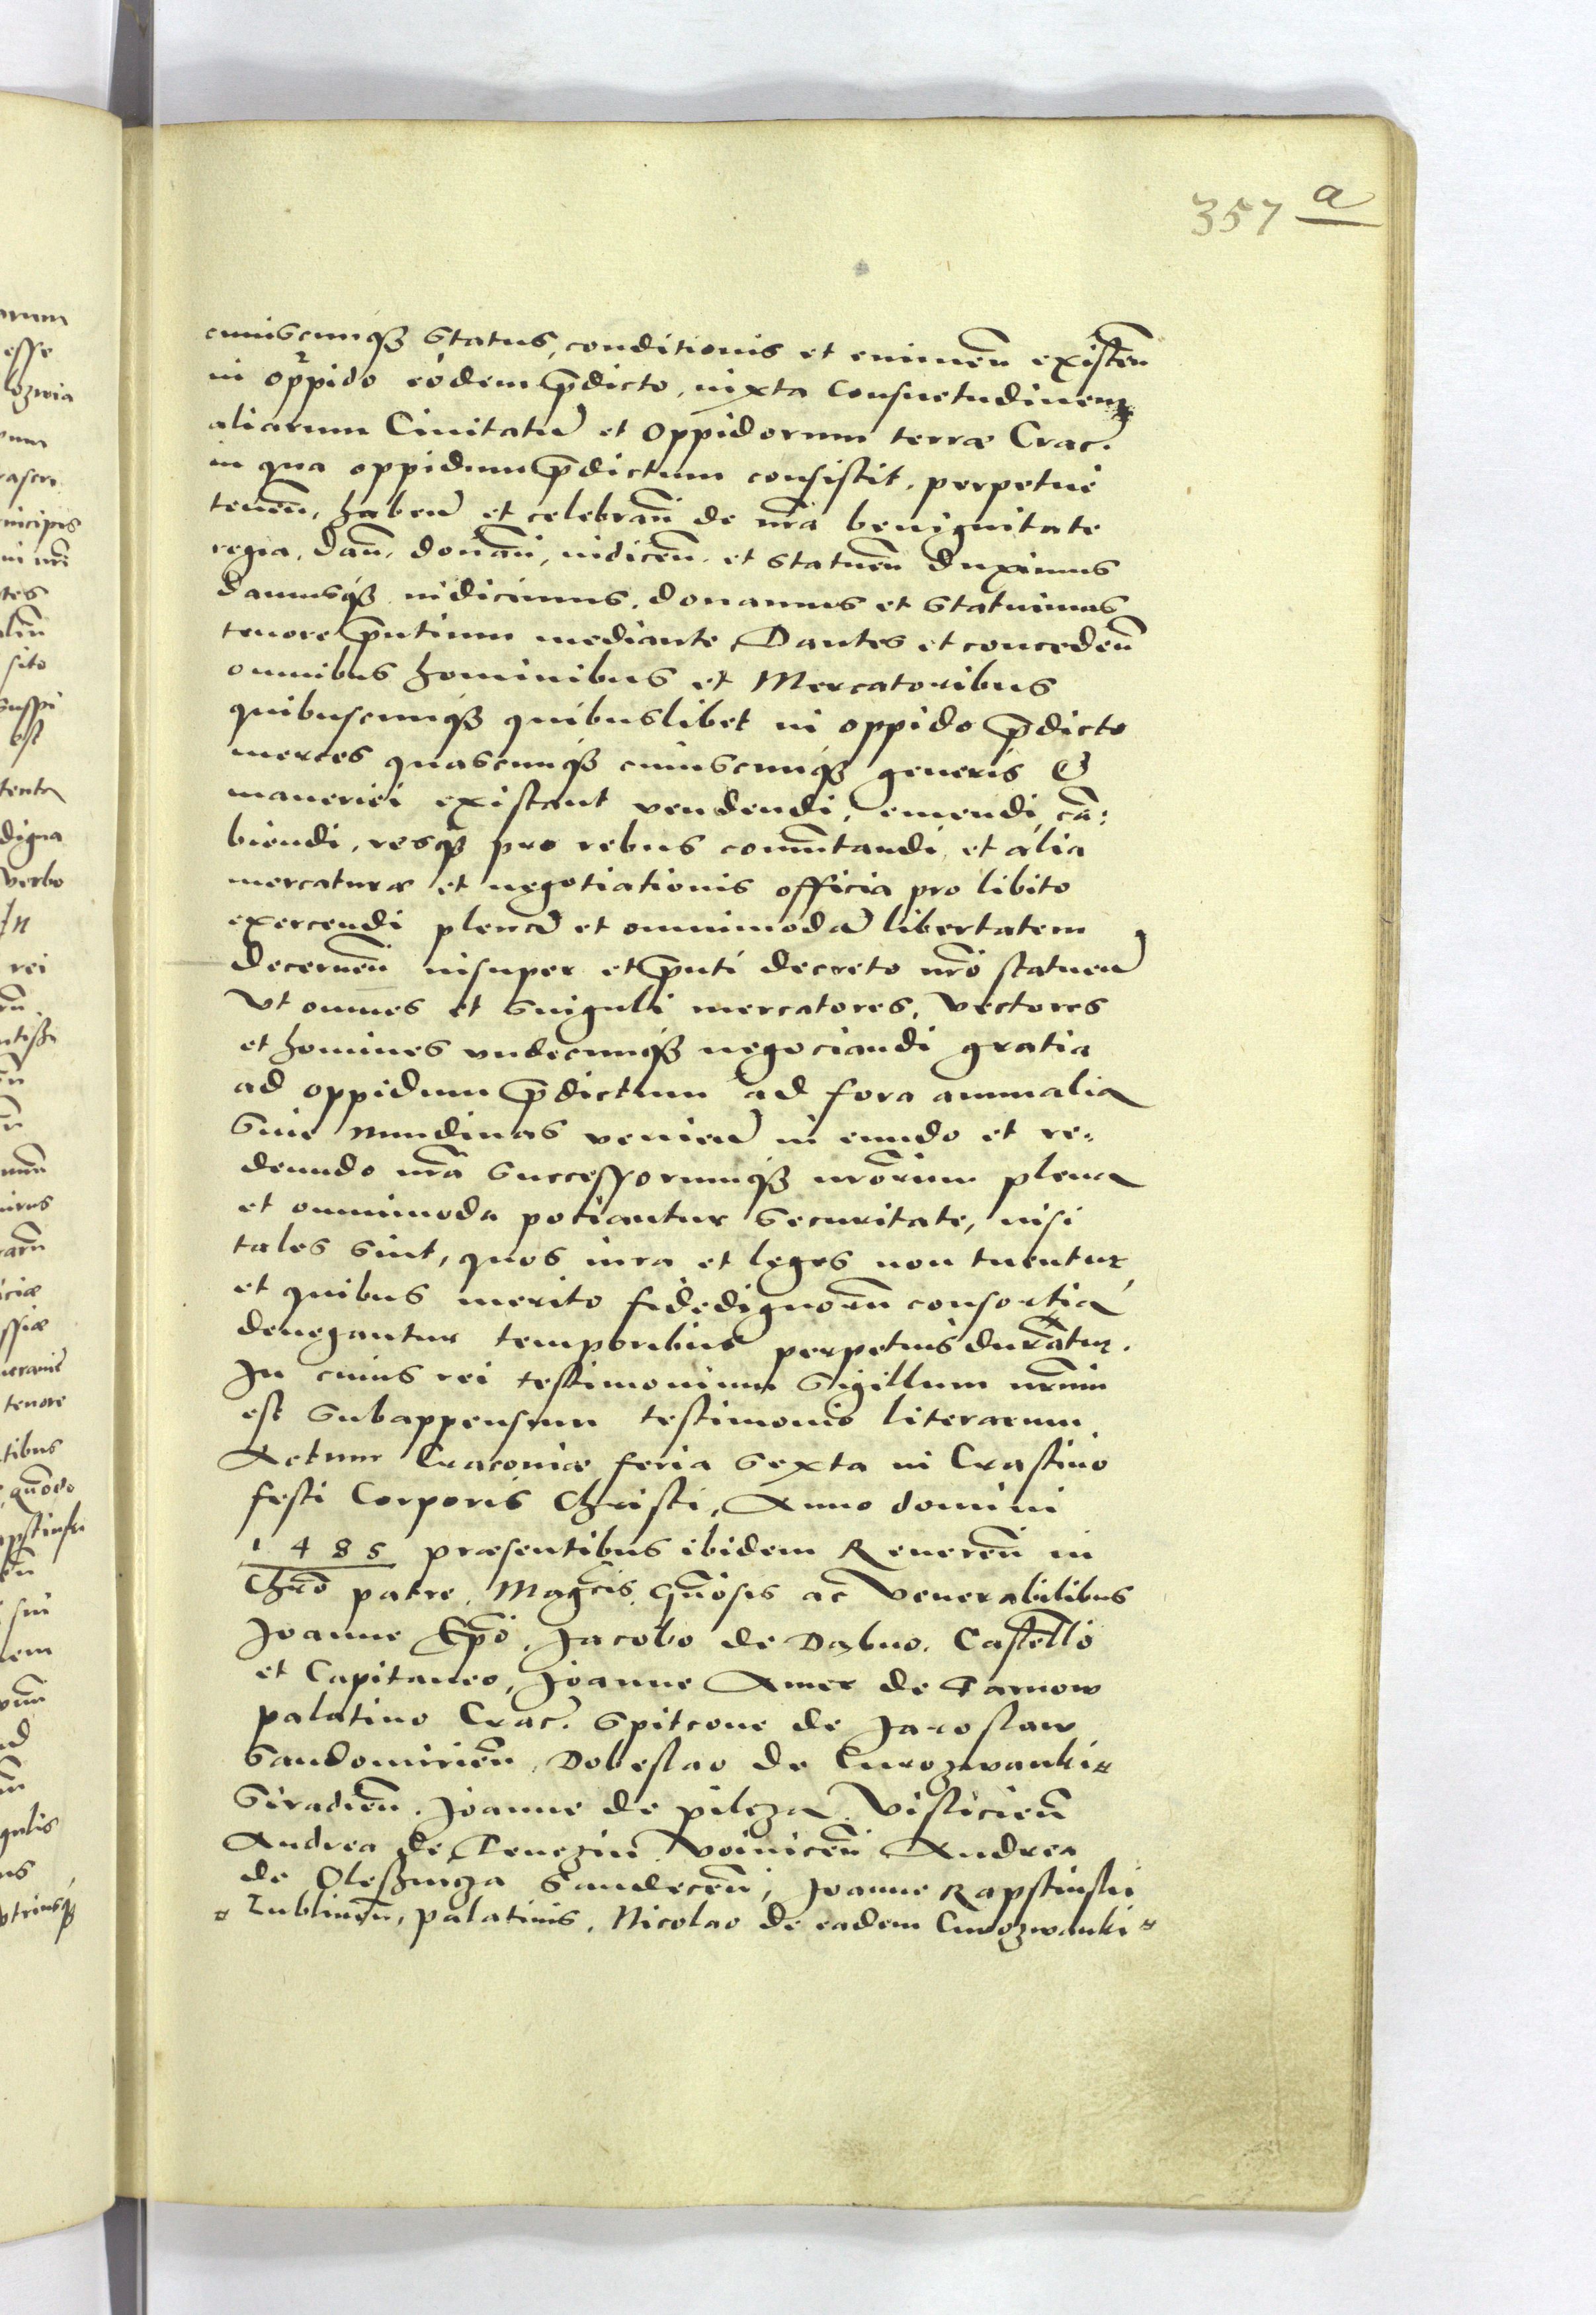 357 a
cuiuscunqȝ status, conditionis et eminen̄ existen̄
in oppido eodem p̄dicto, iuxta consuetudinem
aliarum Ciuitatū et oppidorum terræ Crac.
in qua oppidum p̄dictum consistit, perpetue
tenen̄, haben̄ et celebran̄ de nr̄a benignitate
regia, dan̄, donan̄, indicen̄, et statuen̄ duximus
damusqȝ indicimus, donamus et statuimus
tenore p̄ntium mediante, Dantes et conceden̄
omnibus hominibus et Mercatoribus
quibuscunqȝ quibuslibet in oppido p̄dicto
merces quascunqȝ cuiuscunqȝ generis &
maneriei existant vendendi, emendi, cā:
biendi, resqȝ pro rebus com̄utandi, et alia
mercaturæ et negotiationis officia pro libito
exercendi plenā et omnimodā libertatem
decernen̄ insuper et p̄nti decreto nr̄o statuen̄
Vt omnes et singuli mercatores, vectores
et homines vndecunqȝ negociandi gratia
ad oppidum p̄dictum ad fora annualia
siue nundinas venien̄ in eundo et re:
deundo nr̄a successorumqȝ nr̄orum plena
et omnimoda potiantur securitate, nisi
tales sint, quos iura et leges non tuentur
et quibus merito fidedignorū consortia
denegantur temporibus perpetuis duratur.
In cuius rei testimonium sigillum nr̄um
est subappensum testimonio literarum.
Actum Cracouiæ feria sexta in Crastino
festi Corporis Christi, Anno domini
1485 præsentibus ibidem Reueren̄ in
Chr̄o patre, Mag͞cis, G͞nosis ac Venerabilibus
Joanne Ep̄o, Jacobo de Dabno, Castell̄o
et Capitaneo, Joanne Amor de Tarnow
palatino Crac. Spitcone de Jaroslaw
Sandomirien̄, Dobeslao de Curozwanki
Siradien̄. Joanne de pilcza Visliciēn̄
Andrea de Tenczin Voinicen̄ Andrea
de Olesznicza Sandecen̄, Joanne Rapstinski
Lublinen̄, palatinis, Nicolao de eadem Curozwanki